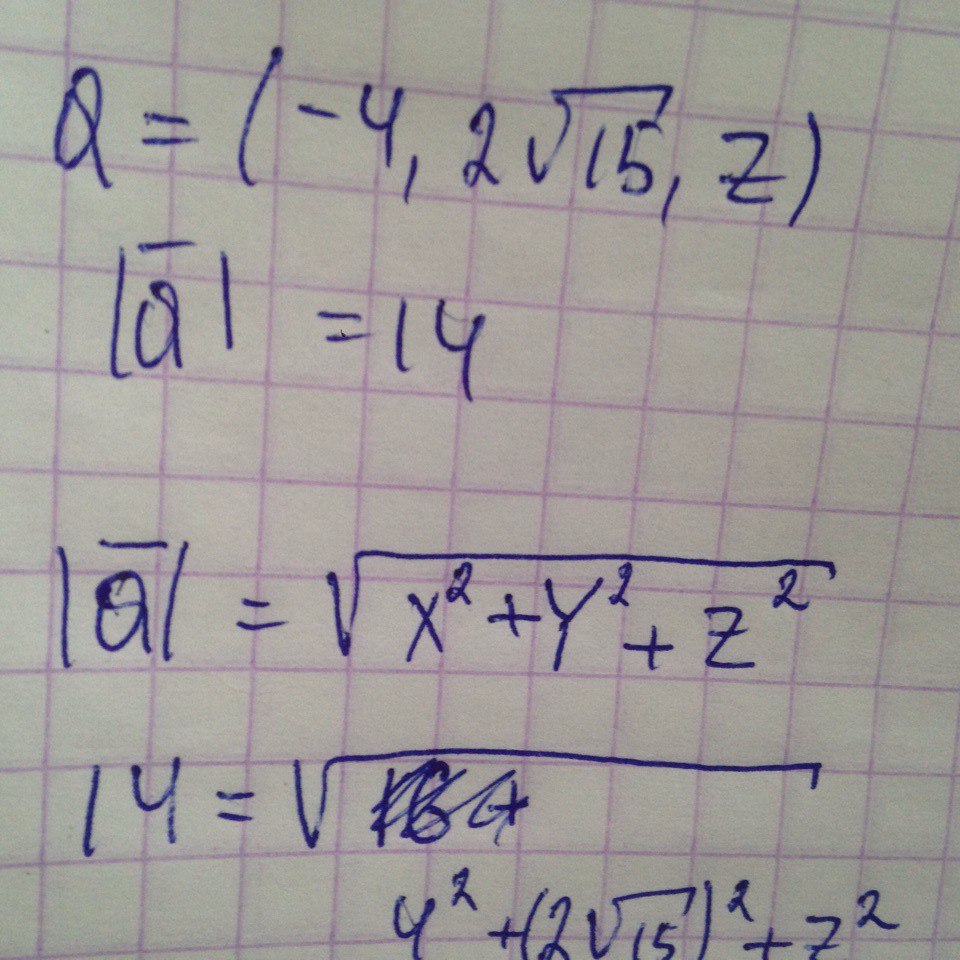 a = (-4, 2√15, z)
|a̅| = 14
|a̅| = √x²+y²+z²
14 = √
4²+(2√15)²+z²